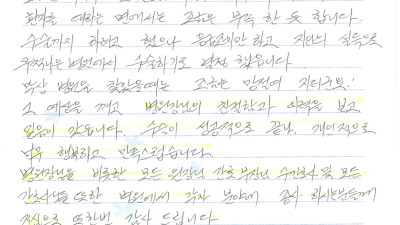 환자를 대하는 면에서는 조금은 부족 한 듯 합니다.
수술까지 하려고 했으나 응급조치만 하고 지인의 설득으로
병원에서 수술하기로 결정 했습니다.
막상 병원을 찾았을때는 조금은 망설여 지더군요!
그 예상을 깨고 병원장님의 친절함과 이력을 보고
믿음이 갔읍니다. 수술이 성공적으로 끝나, 개인적으로
너무 행복하고 만족스럽습니다.
병원장님을 비롯한 모든 원장님 간호부장님 수간호사 및 모든
간호사님들 또한 병원에서 각자 분야에 종사 하시는분들께
진심으로 또한번 감사 드립니다.